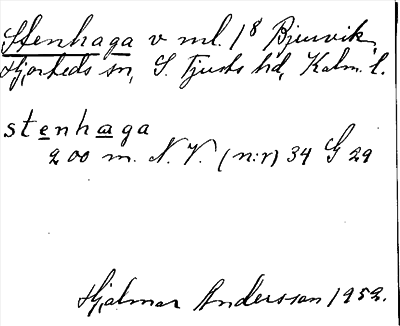 Stenhaga v ml. 1⁸ Bjurvik,
Hjorteds sn, S. Tjusts hd, Kalm. l.
stenhaga
200 m. N.V. (n:r) 34 G 29
Hjalmar Andersson 1952.